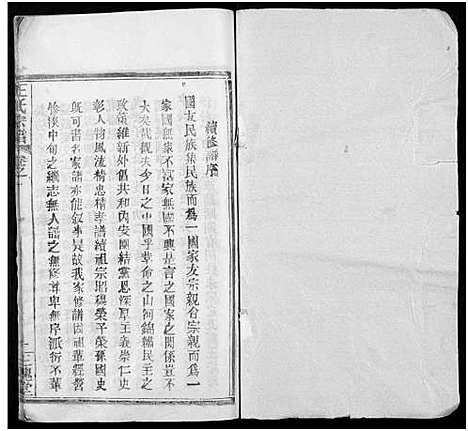 續修譜序
國友民族集民族而為一國家友宗親合宗親而為一
家國無家不成家無國不興是言之國家之關係豈不
大矣哉觀夫今日之中國乎革命之山河錦繡民主之
政策維新外倡共和內安團結黨恩深厚主義崇仁史
彰人物風流精忠精孝譜續祖宗昭穆榮子榮孫國史
既可書名家譜亦能叙事昊故我家修譜因祖華經營
後漢中旬之繼志無人譜之無修尊卑無序派衍不華
王氏宗譜
卷之一
一
三槐堂